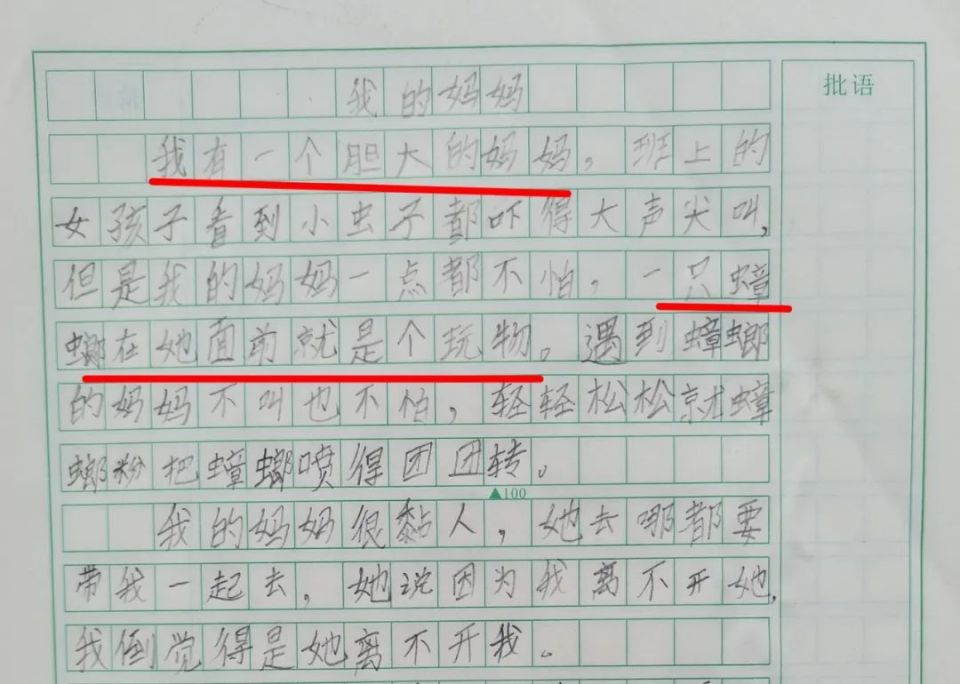 我的妈妈
批语
我有一个胆大的妈妈，班上的
女孩子看到小虫子都吓得大声尖叫，
但是我的妈妈一点都不怕，一只蟑
螂在她面前就是个玩物。遇到蟑螂
的妈妈不叫也不怕，轻轻松松就蟑
螂粉把蟑螂喷得团团转。
▲100
我的妈妈很黏人，她去哪都要
带我一起去，她说因为我离不开她，
我倒觉得是她离不开我。